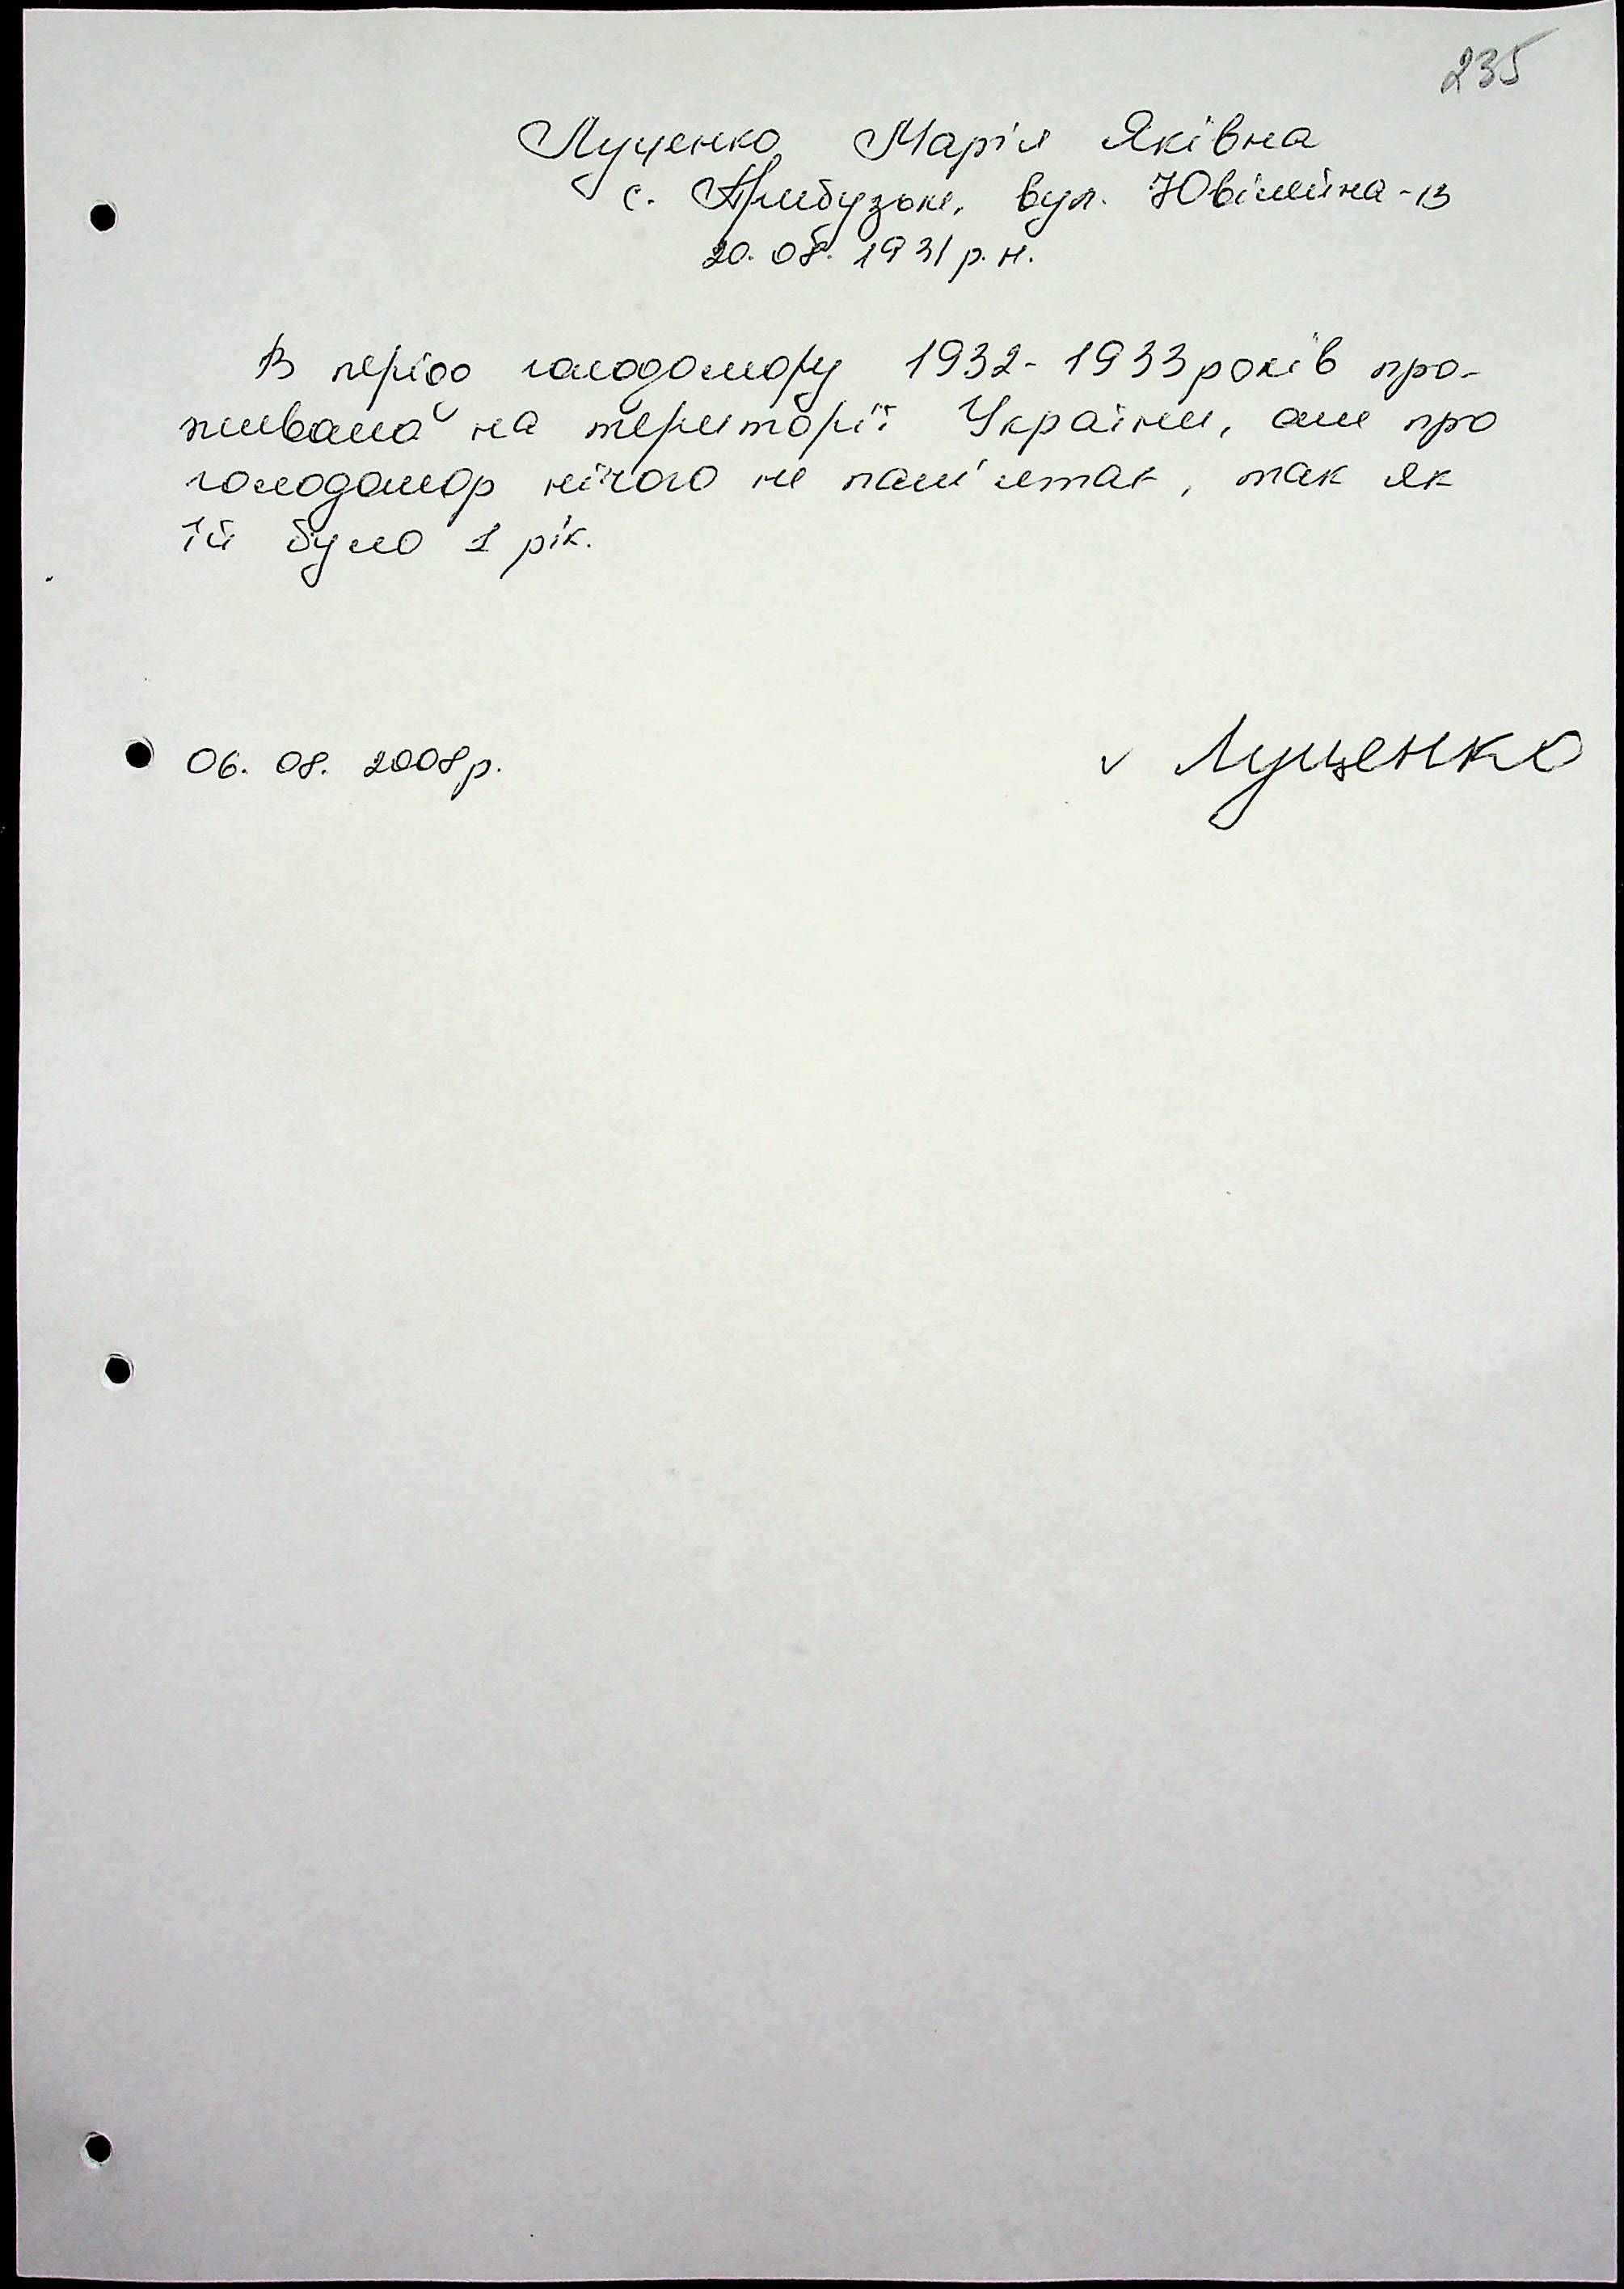 235
Луценко Марія Яківна
с. Прибузьке, вул. Ювілейна-13
20.08.1931 р.н.
В період голодомору 1932-1933 років про-
живала на території України, але про
голодомор нічого не пам'ятає, так як
їй було 1 рік.
06.08.2008 р. v Луценко